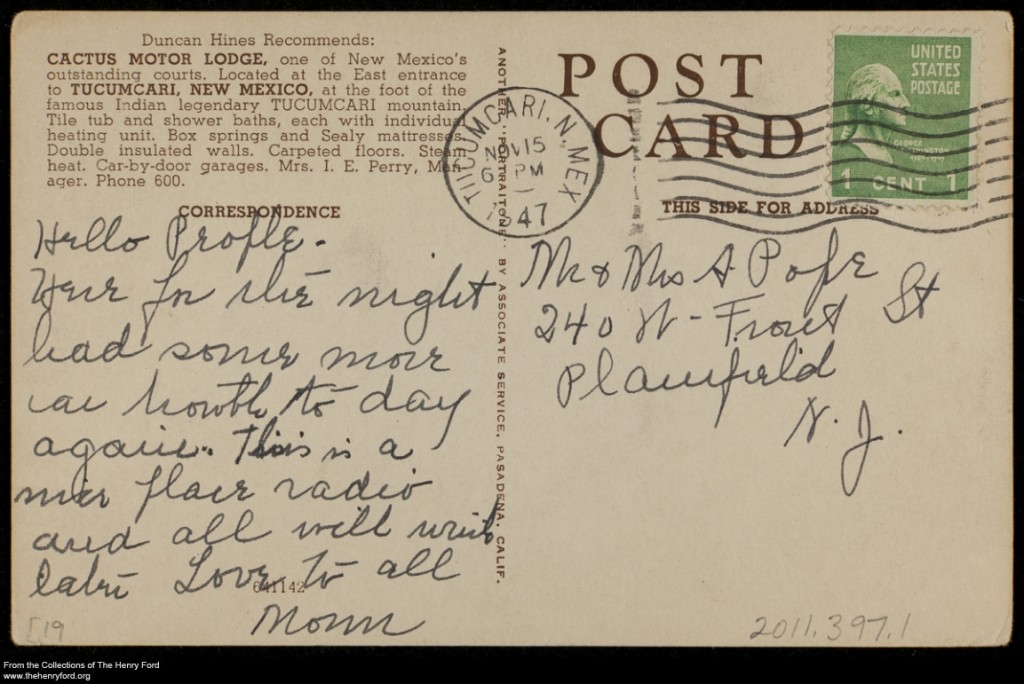 Duncan Hines Recommends:
CACTUS MOTOR LODGE, one of New Mexico's
outstanding courts. Located at the East entrance
to TUCUMCARI, NEW MEXICO, at the foot of the
famous Indian legendary TUCUMCARI mountain.
Tile tub and shower baths, each with individual
heating unit. Box springs and Sealy mattresses.
Double insulated walls. Carpeted floors. Steam
heat. Car-by-door garages. Mrs. I. E. Perry, Man-
ager. Phone 600.
CORRESPONDENCE
Hello People.
Here for the night
had some more
car trouble to day
again. This is a
nice place radio
and all will write
later Love to all
Mom
641142
ANOTHER "PORTRAITONE" BY ASSOCIATE SERVICE, PASADENA, CALIF.
POST
CARD
THIS SIDE FOR ADDRESS
TUCUMCARI, N. MEX
NOV 15
6 PM
1947
UNITED
STATES
POSTAGE
GEORGE
WASHINGTON
1 CENT 1
Mr & Mrs A Pope
240 W - Front St
Plainfield
N. J.
[19
2011.397.1
From the Collections of The Henry Ford
www.thehenryford.org